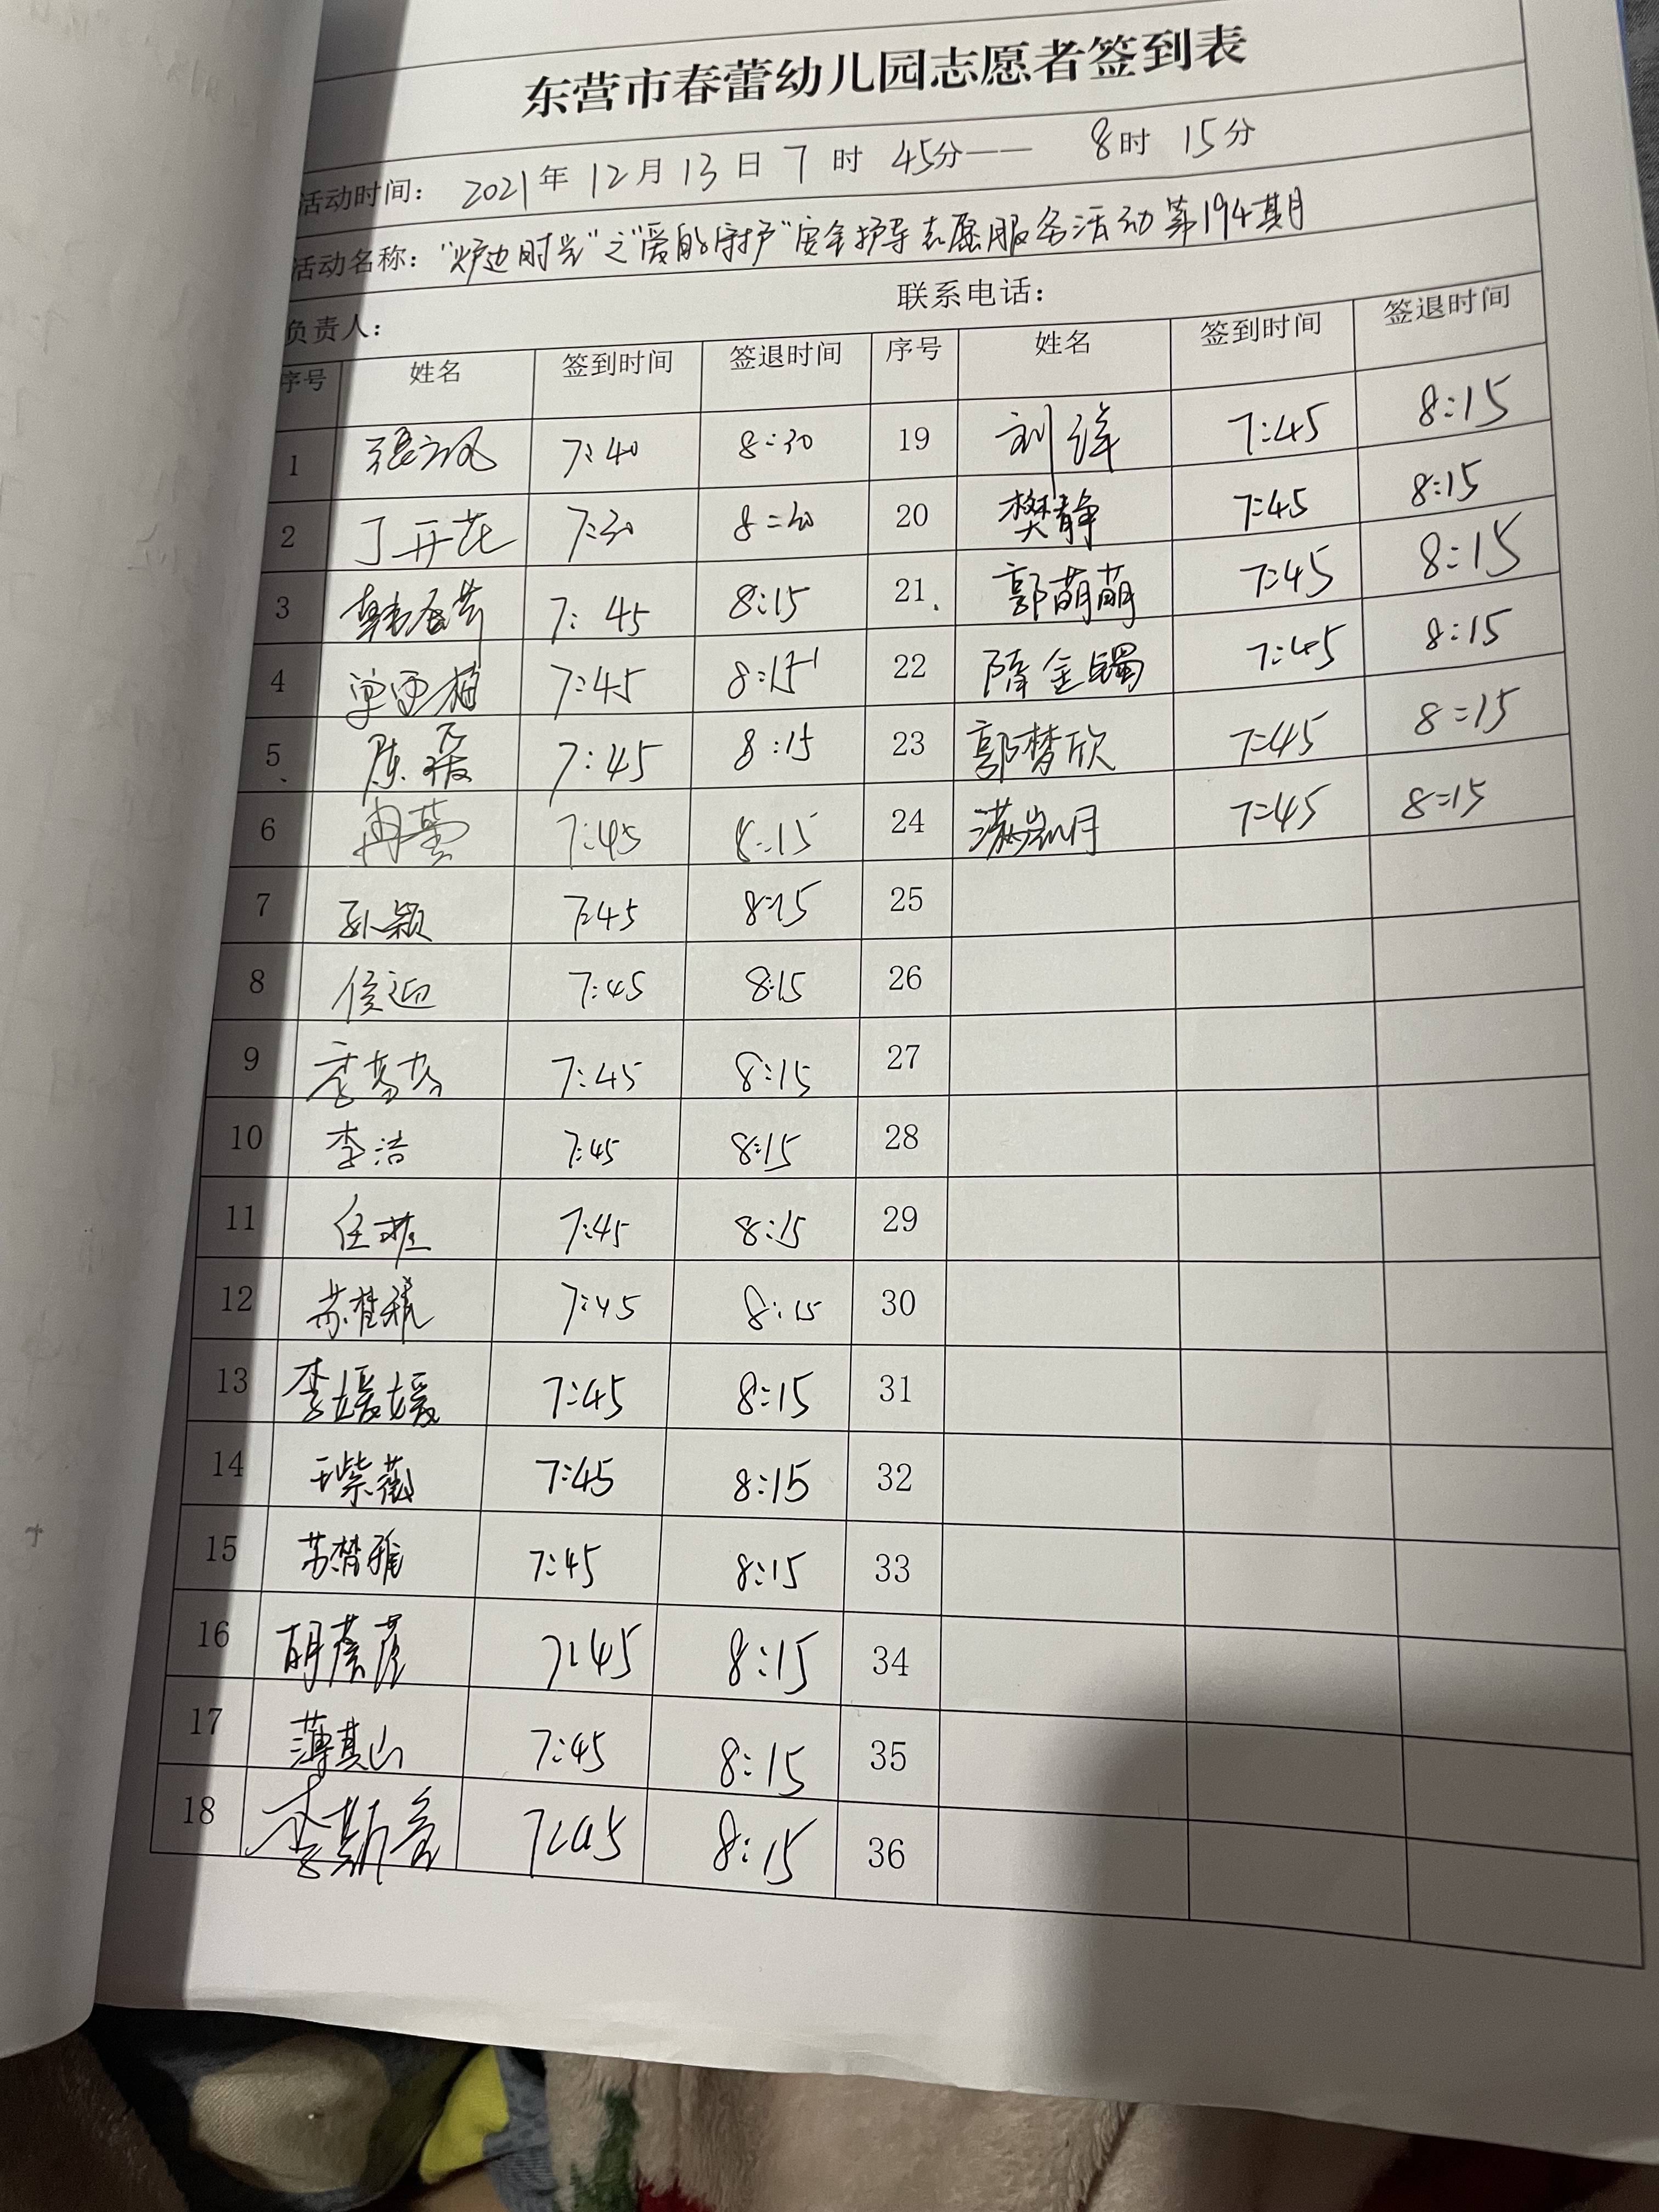 东营市春蕾幼儿园志愿者签到表
活动时间： 2021年 12月 13日 7时 45分—— 8时 15分
活动名称：“炉边时光”之“爱的守护”安全护导志愿服务活动第194期
负责人： 联系电话：
序号 姓名 签到时间 签退时间 序号 姓名 签到时间 签退时间
1 7:40 8:30 19 刘洋 7:45 8:15
2 丁开花 7:30 8:30 20 樊静 7:45 8:15
3 7:45 8:15 21 郭萌萌 7:45 8:15
4 7:45 8:15 22 隋金镯 7:45 8:15
5 陈 7:45 8:15 23 郭梦欣 7:45 8:15
6 冉蕾 7:45 8:15 24 满岩月 7:45 8:15
7 孙颖 7:45 8:15 25
8 侯迎 7:45 8:15 26
9 李芳芳 7:45 8:15 27
10 李洁 7:45 8:15 28
11 任 7:45 8:15 29
12 苏楚 7:45 8:15 30
13 李媛媛 7:45 8:15 31
14 王紫薇 7:45 8:15 32
15 苏梦雅 7:45 8:15 33
16 胡 7:45 8:15 34
17 薄其山 7:45 8:15 35
18 李斯 7:45 8:15 36